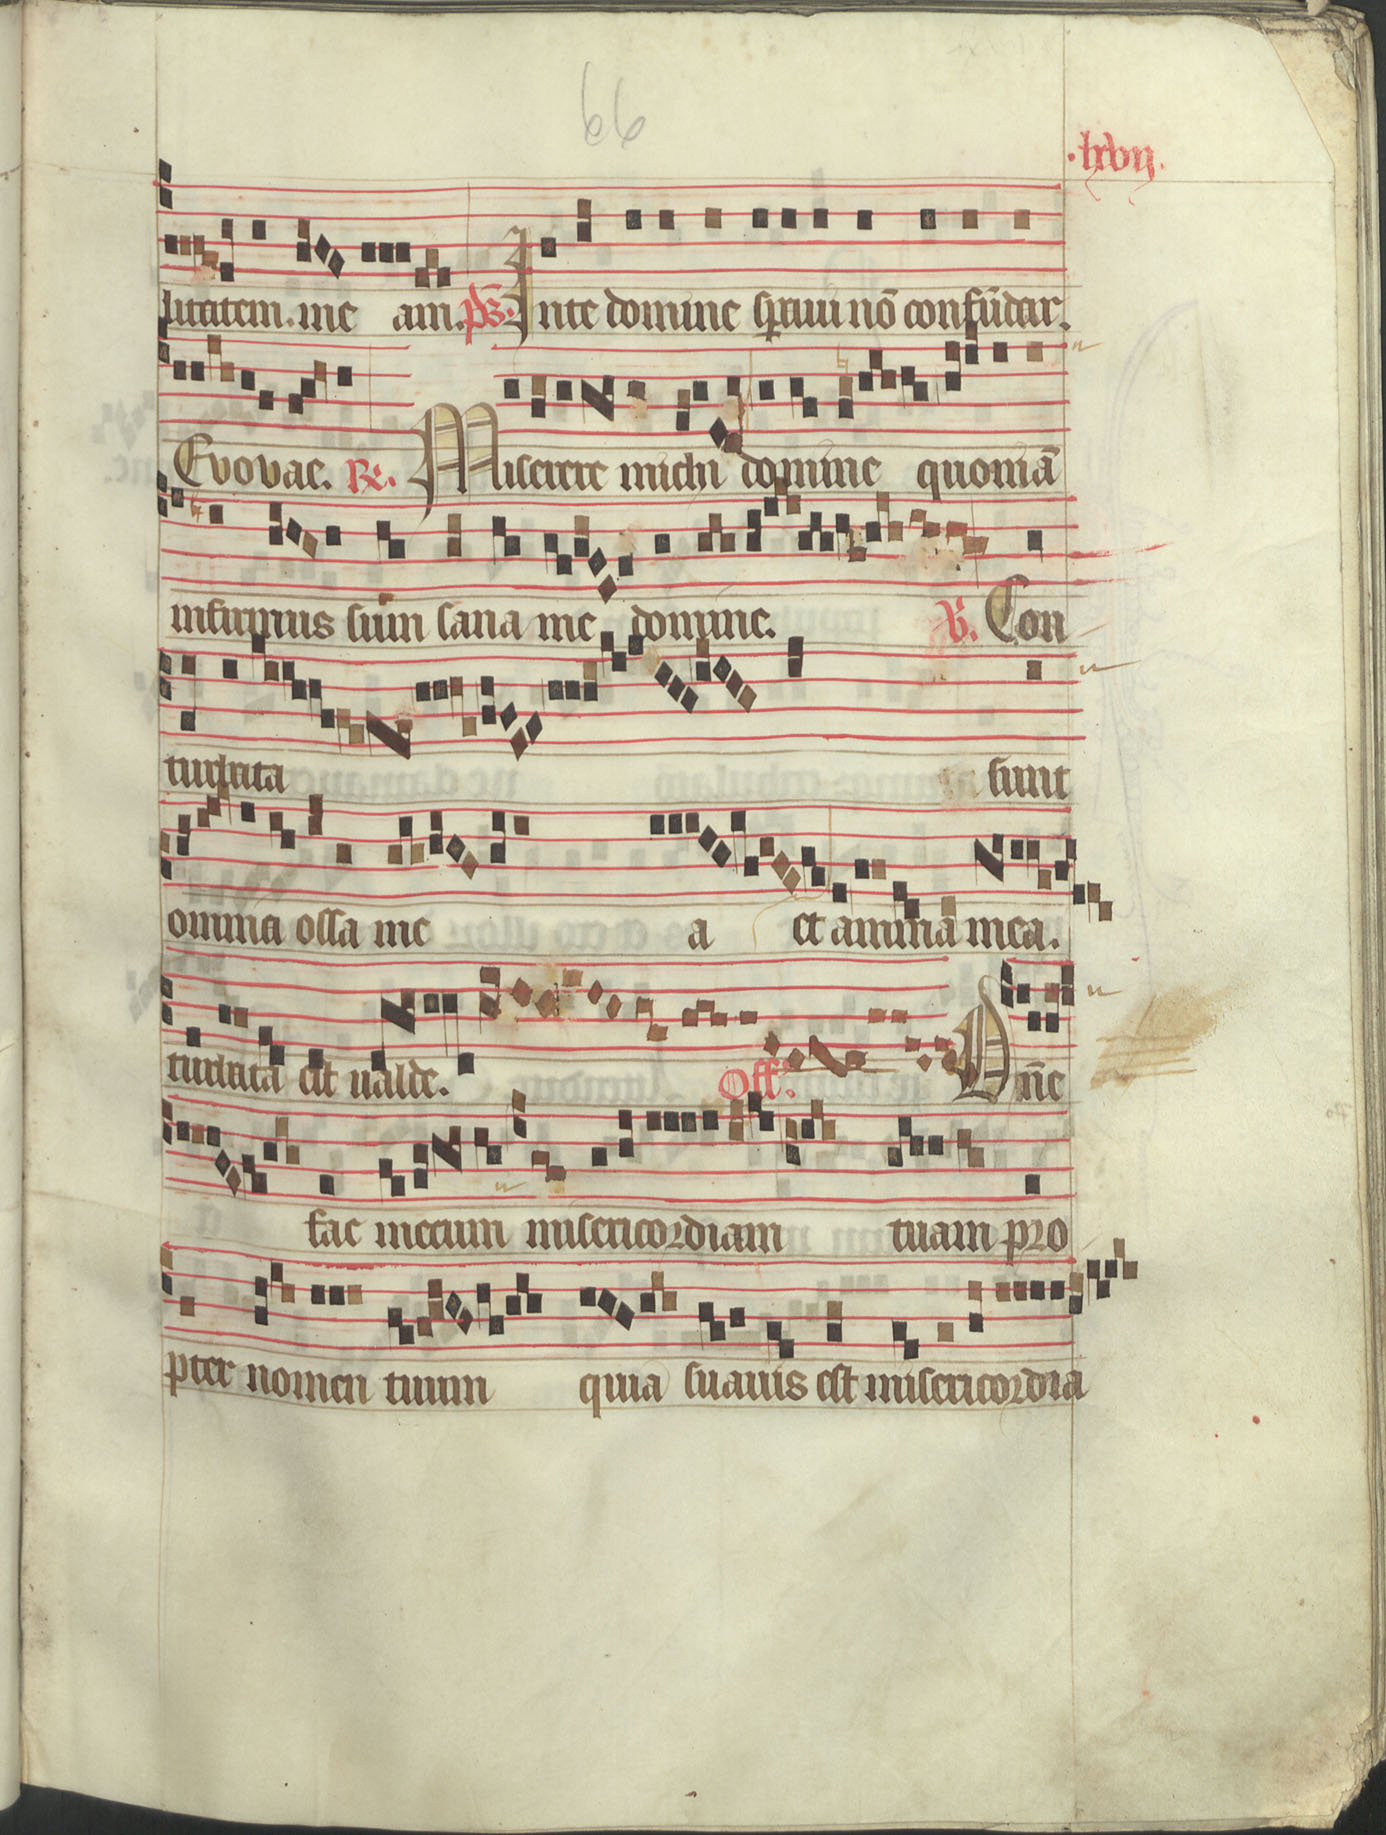 66
.lxvij.
litatem. me am. ps. In te domine speraui nō confūdar.
Evovae. R. Miserere michi domine quoniā
infirmus sum sana me domine. V. Con
turbata sunt
omnia ossa me a et anima mea.
turbata est ualde. Off. Dn̄e
fac mecum misericordiam tuam pro
pter nomen tuum quia suauis est misericordia